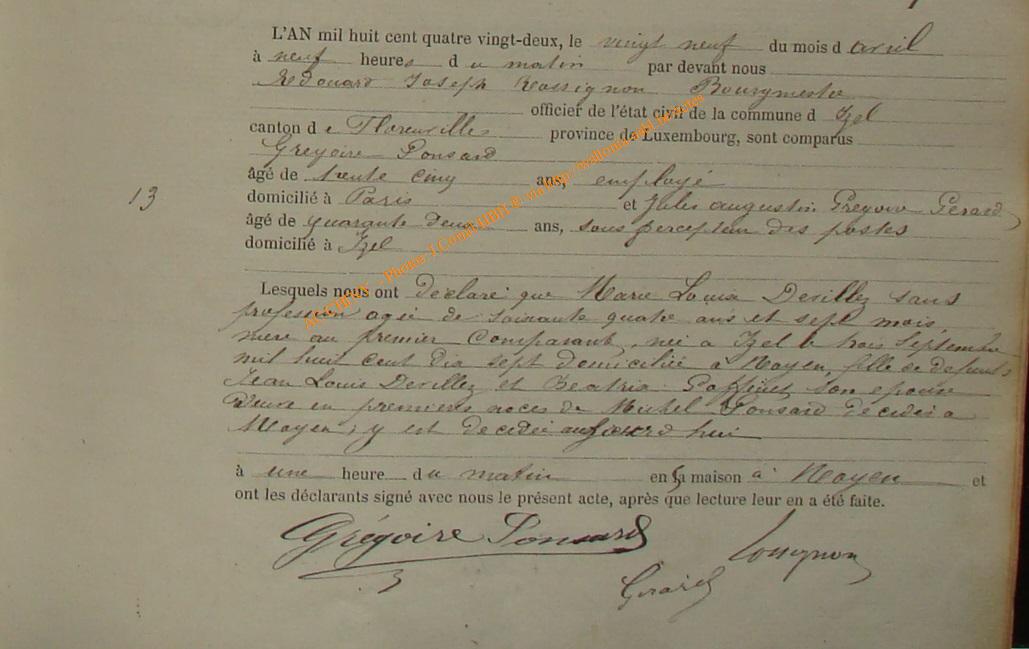 L'AN mil huit cent quatre vingt-deux, le vingt neuf du mois d avril
à neuf heures d u matin par devant nous
Edouard Joseph Rossignon Bourgmestre
officier de l'état civil de la commune d Izel
canton d e Florenville province de Luxembourg, sont comparus
Grégoire Ponsard
âgé de trente cinq ans, employé
13
domicilié à Paris et Jules augustin Grégoire Gerard
âgé de quarante deux ans, sous percepteur des postes
domicilié à Izel
Lesquels nous ont déclaré que Marie Louise Devillez sans
profession agée de soixante quatre ans et sept mois,
mère au premier Comparant, née a Izel le trois Septembre
mil huit cent dix sept domiciliée à Moyen, fille de defunts
Jean Louis Devillez et Beatrix Goffinet son epouse
Veuve en premieres noces de Michel Ponsard décédé a
Moyen, y est decedée aujourd hui
à une heure d u matin en sa maison à Moyen et
ont les déclarants signé avec nous le présent acte, après que lecture leur en a été faite.
Grégoire Ponsard
Rossignon
Gerard